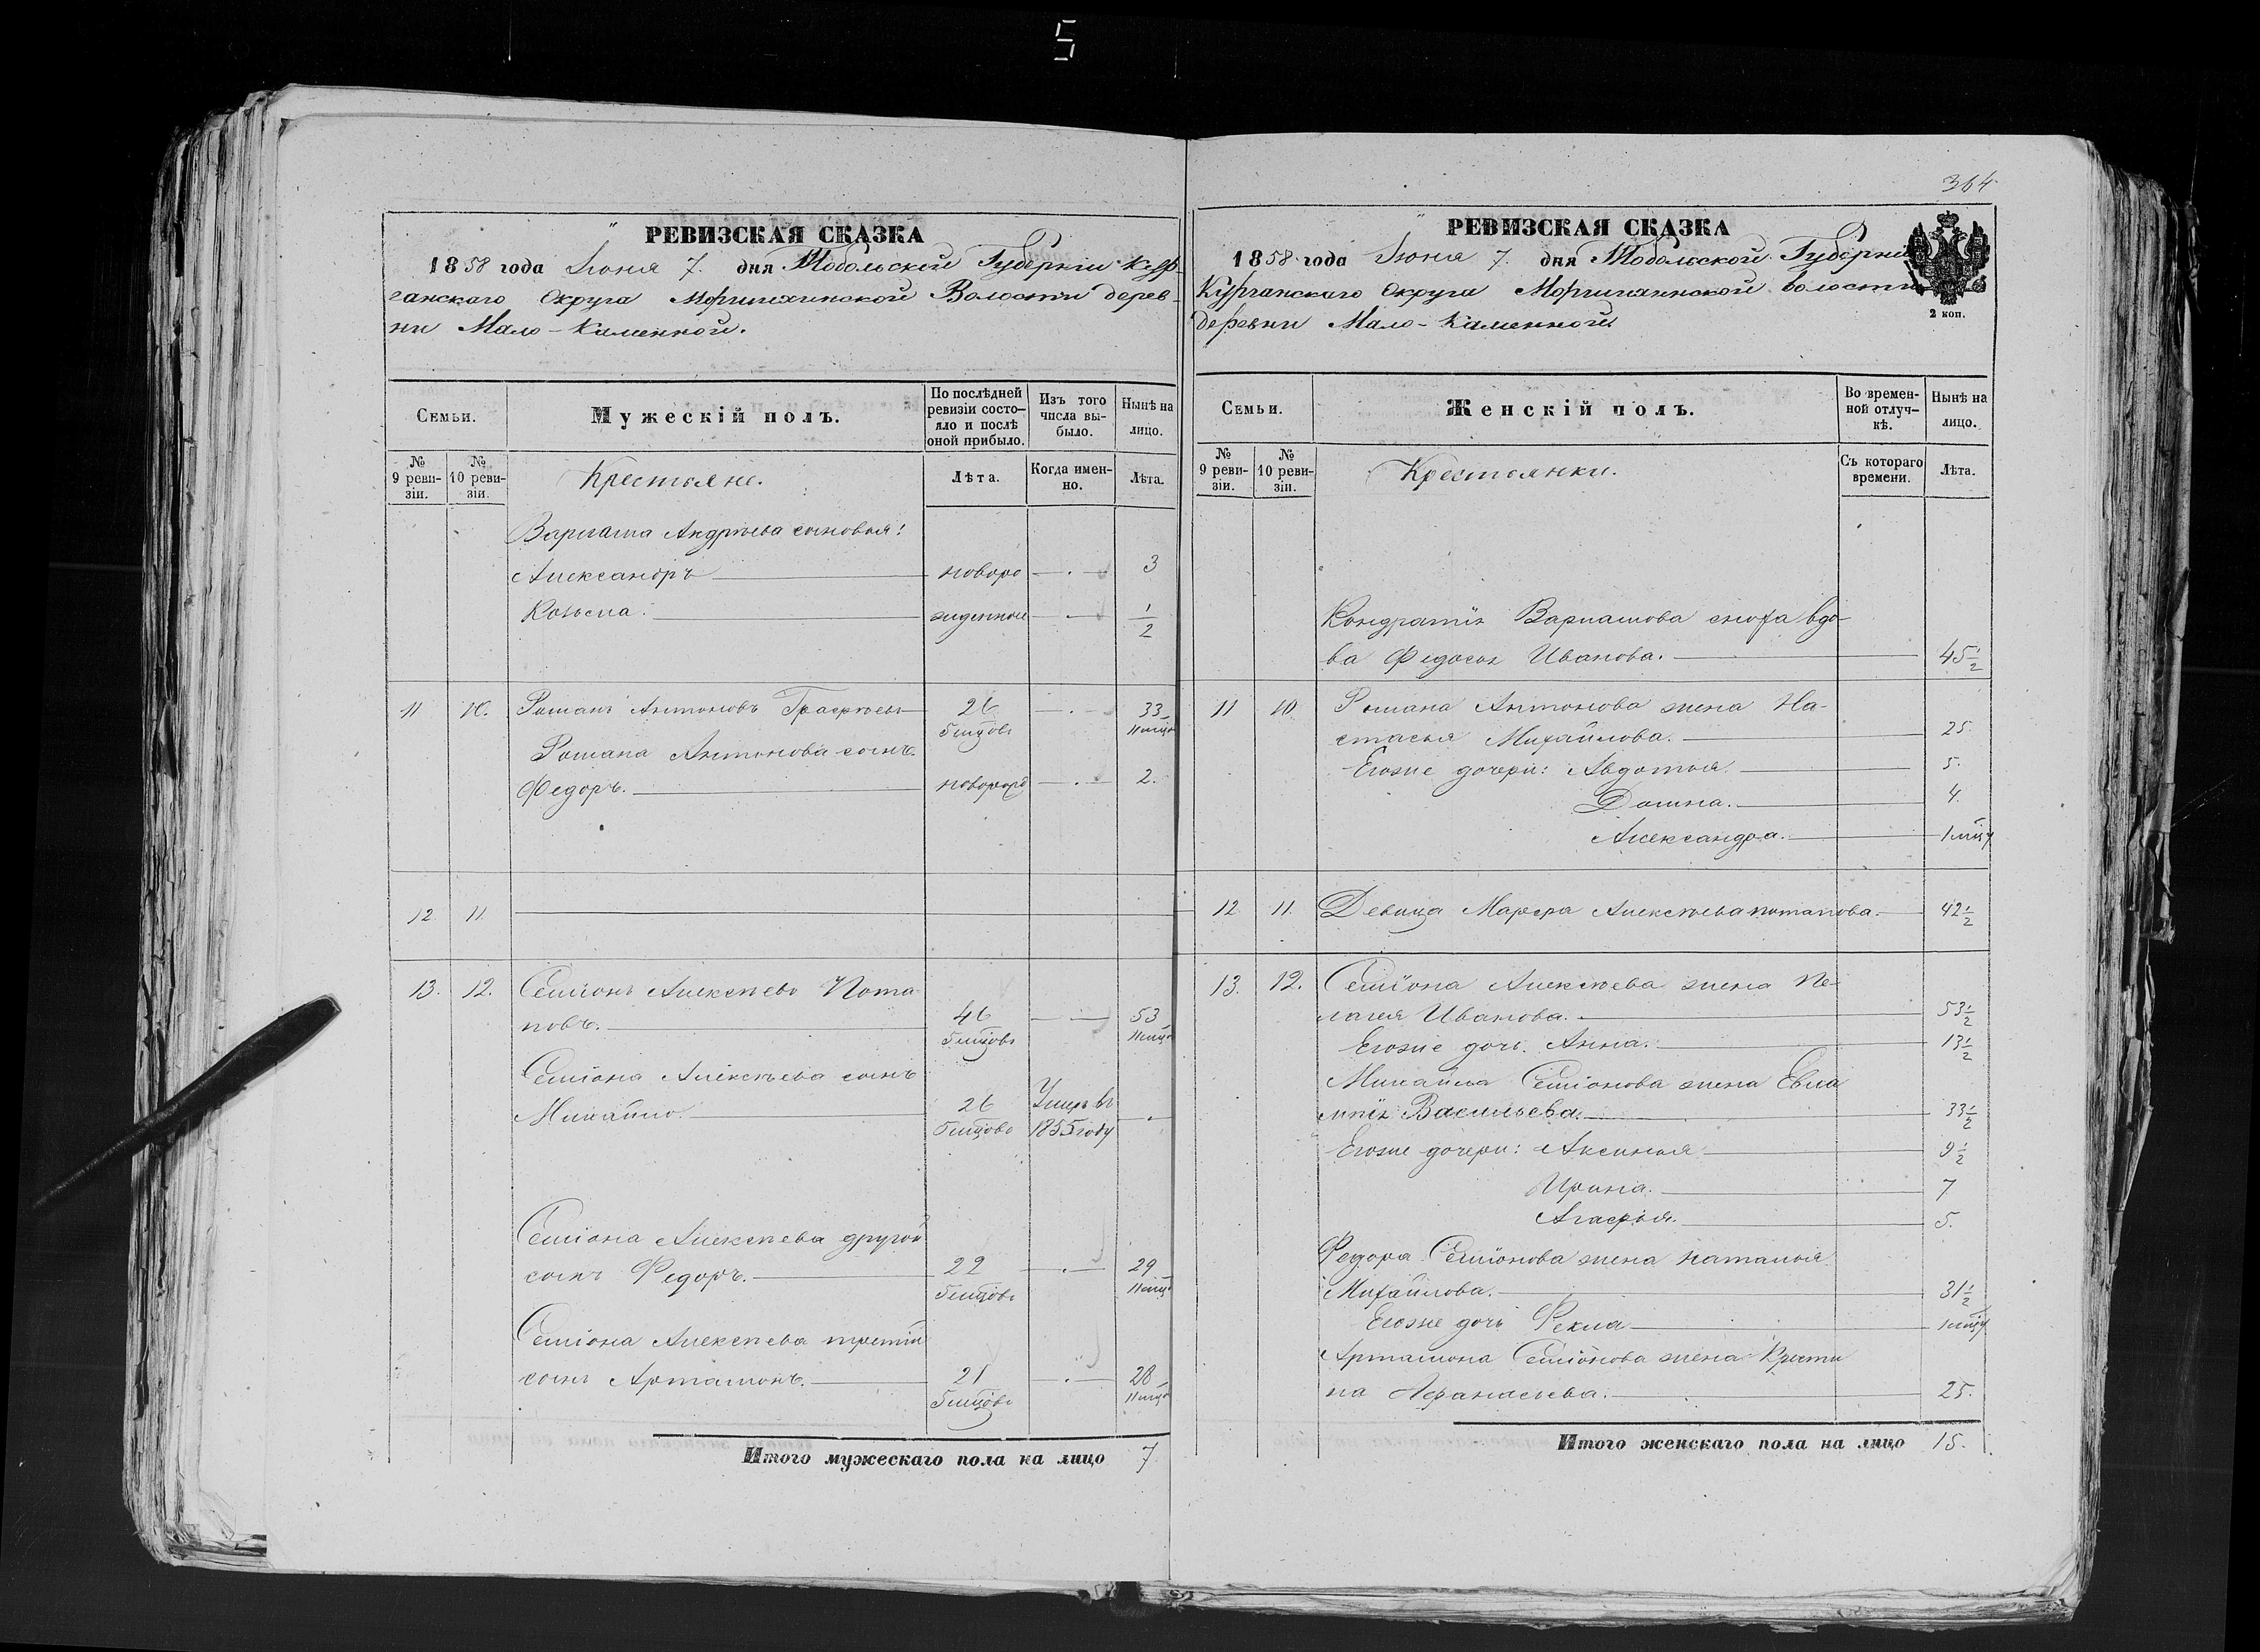 5
РЕВИЗСКАЯ СКАЗКА
1858 года Июня 7. дня Тобольской Губерніи Кур-
ганскаго Округа Моршихинской Волости дерев-
ни Мало-Каменной.
Семьи.
Мужескій полъ.
По послѣдней ревизіи состо-
яло и послѣ оной прибыло.
Изъ того числа вы-
было.
Нынѣ на лицо.
№ 9 реви-
зіи.
№ 10 реви-
зіи.
Крестьяне.
Лѣта.
Когда имен-
но.
Лѣта.
Варлама Андрѣева сыновья:
Александръ новоро 3
Козьма. жденной 1/2
11 10. Романъ Антоновъ 26 33
6 мцовъ 11 мцо
Романа Антонова сынъ
Федоръ. новорож 2.
12 11.
13. 12. Семіонъ Алексѣевъ Пота-
повъ. 46 53
6 мцовъ 11 мцо
Семіона Алексѣева сынъ
Михайло. 26 Умеръ въ
6 мцовъ 1855 году
Семіона Алексѣева другой
сынъ Федоръ. 22 29
6 мцовъ 11 мцо
Семіона Алексѣева третій
сынъ Артамонъ. 21 28
6 мцовъ 11 мцо
Итого мужескаго пола на лицо 7
364
РЕВИЗСКАЯ СКАЗКА
1858 года Июня 7. дня Тобольской Губерніи
Курганскаго Округа Моршихинской волости
деревни Мало-Каменной
2 коп.
Семьи.
Женскій полъ.
Во времен-
ной отлуч-
кѣ.
Нынѣ на лицо.
№ 9 реви-
зіи.
№ 10 реви-
зіи.
Крестьянки.
Съ котораго времени.
Лѣта.
Кондратія Варламова снoха вдо-
ва Федосья Иванова. 45 1/2
11 10 Романа Антонова жена На-
стасья Михайлова. 25.
Егоже дочери: Авдотья. 5.
Домна. 4.
Александра. 1 мцу
12 11. Девица Марфа Алексѣева Потапова. 42 1/2
13. 12. Семіона Алексѣева жена Пе-
лагея Иванова. 53 1/2
Егоже дочь. Анна. 13 1/2
Михайла Семіонова жена Евла
мпія Васильева. 33 1/2
Егоже дочери: Аксинья 9 1/2
Ирина. 7
Агафья. 5.
Федора Семіонова жена Наталья
Михайлова. 31 1/2
Егоже дочь Фекла 1 мцу
Артамона Семіонова жена Крести
на Афанасьева. 25.
Итого женскаго пола на лицо 15.